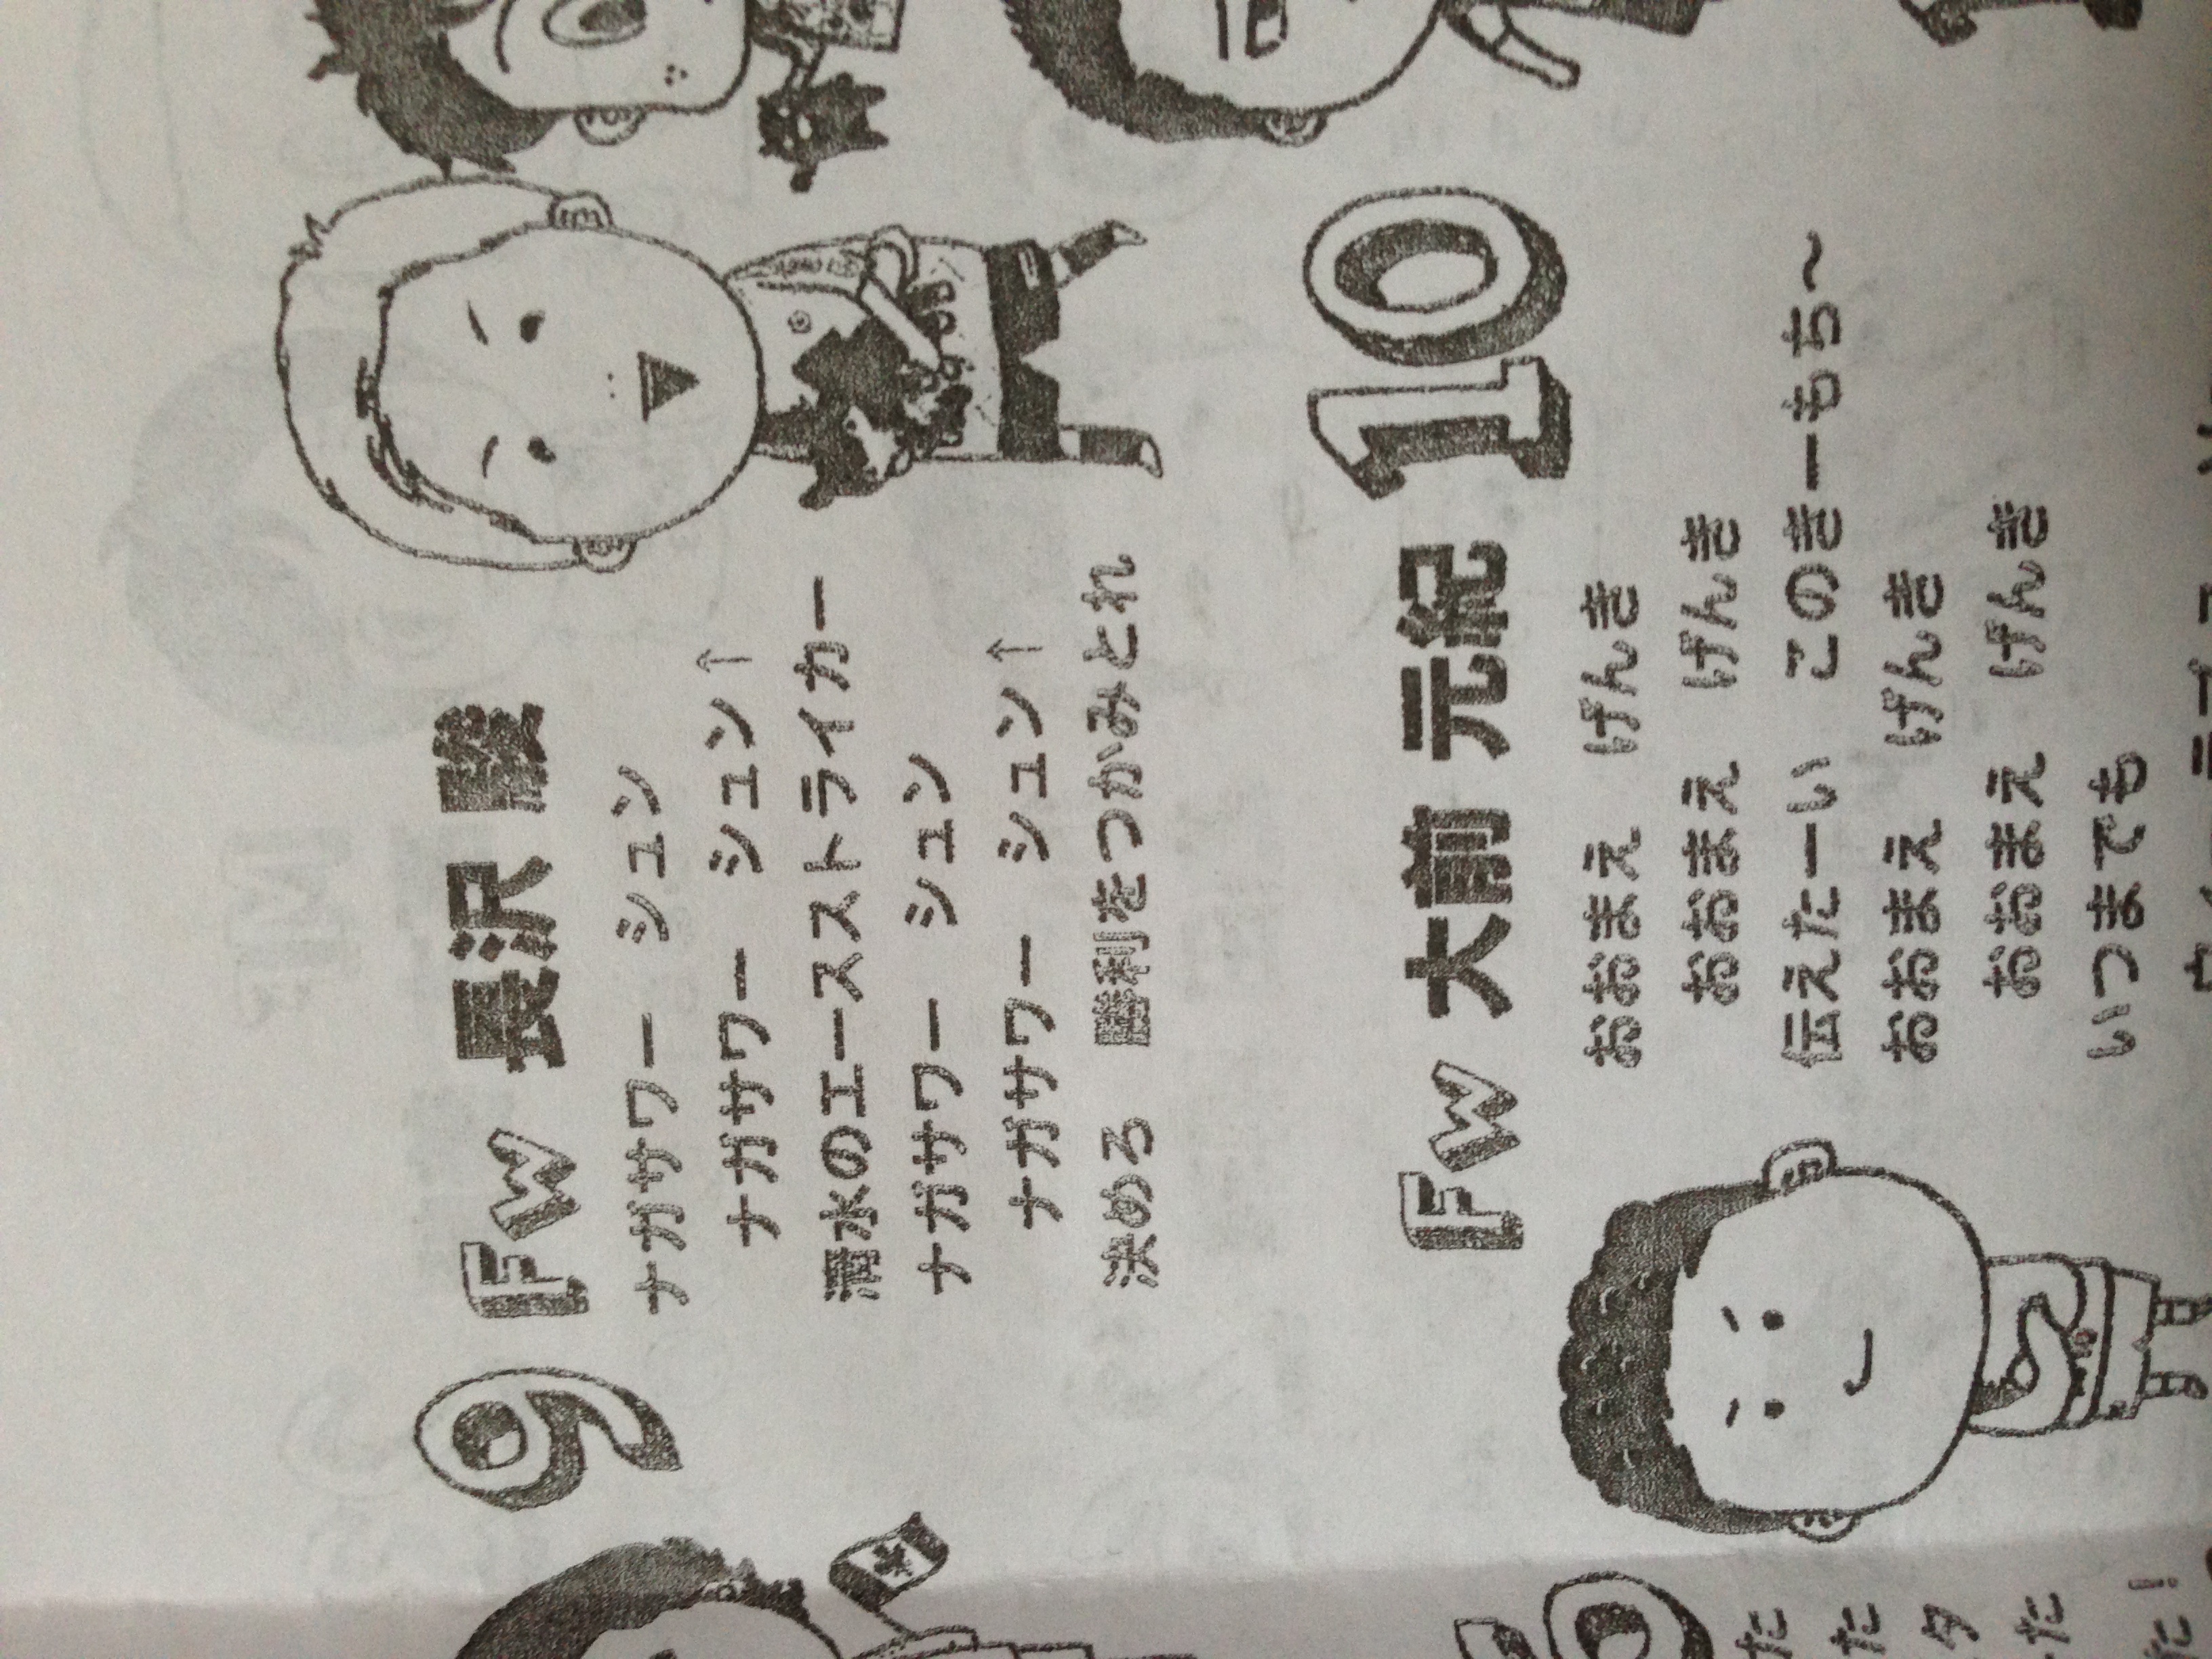 9 FW 長沢 駿
ナガサワー シュン
ナガサワー シュン↑
清水のエースストライカー
ナガサワー シュン
ナガサワー シュン↑
決めろ 勝利をつかみとれ
FW 大前 元紀 10
おおまえ げんき
おおまえ げんき
伝えたーい このきーもち～
おおまえ げんき
おおまえ げんき
いつまでも